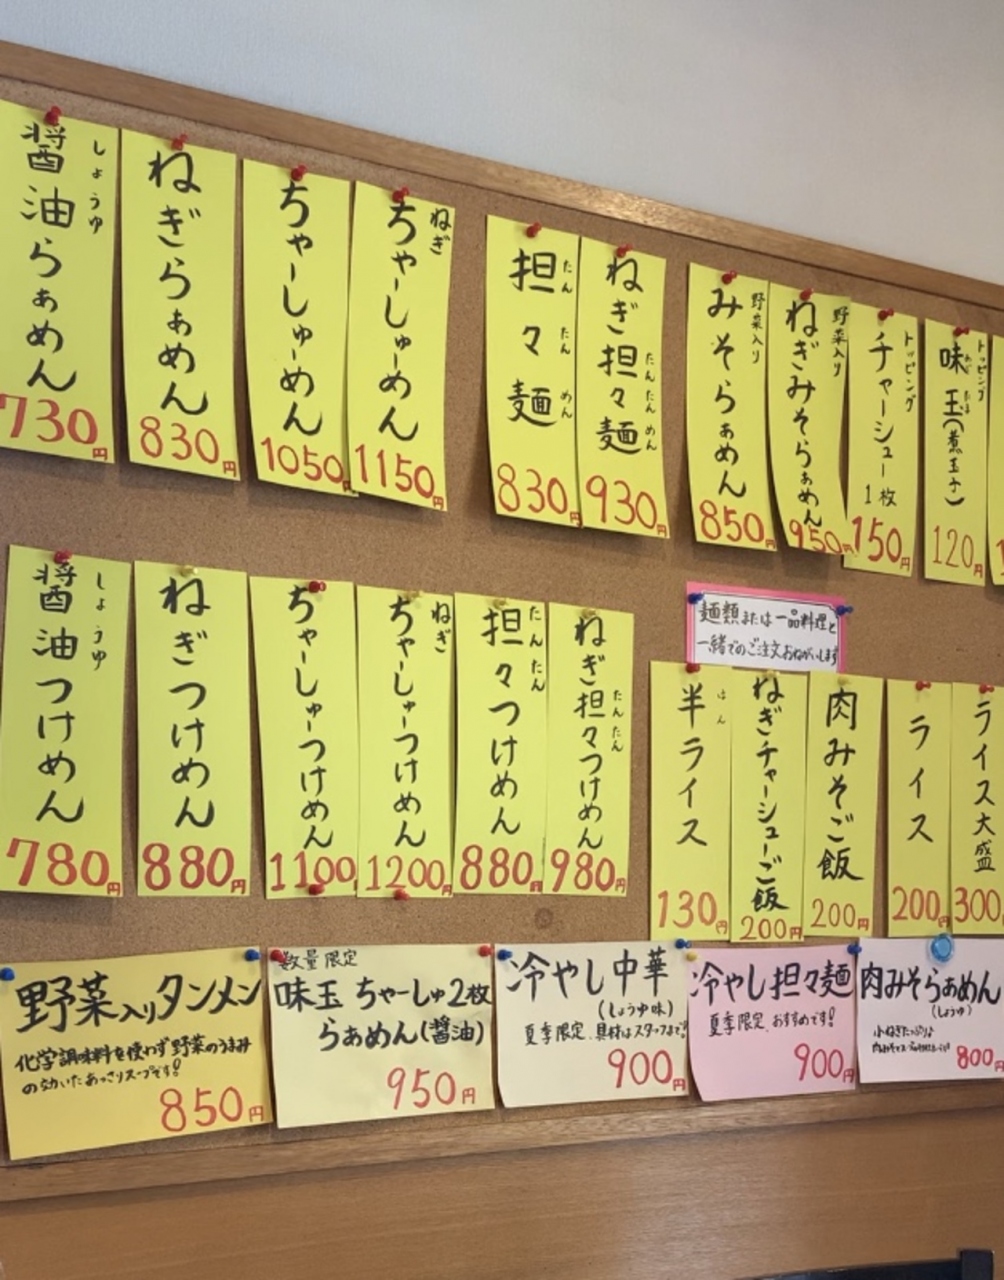 醤油らぁめん
しょうゆ
730円
ねぎらぁめん
830円
ちゃーしゅーめん
1050円
ねぎ
ちゃーしゅーめん
1150円
担々麺
たんたんめん
830円
ねぎ担々麺
たんたんめん
930円
野菜入り
みそらぁめん
850円
野菜入り
ねぎみそらぁめん
950円
トッピング
チャーシュー1枚
150円
トッピング
味玉(煮玉子)
あじたま
120円
醤油つけめん
しょうゆ
780円
ねぎつけめん
880円
ちゃーしゅーつけめん
1100円
ねぎ
ちゃーしゅーつけめん
1200円
担々つけめん
たんたん
880円
ねぎ担々つけめん
たんたん
980円
麺類または一品料理と
一緒でのご注文おねがいします
半ライス
はん
130円
ねぎチャーシューご飯
200円
肉みそご飯
200円
ライス
200円
ライス大盛
300円
野菜入りタンメン
化学調味料を使わず野菜のうまみ
の効いたあっさりスープです!
850円
数量限定
味玉 ちゃーしゅ2枚
らぁめん(醤油)
950円
冷やし中華
(しょうゆ味)
夏季限定、具材はスタッフまで!
900円
冷やし担々麺
夏季限定、おすすめです!
900円
肉みそらぁめん
(しょうゆ)
小ねぎたっぷり♪
800円